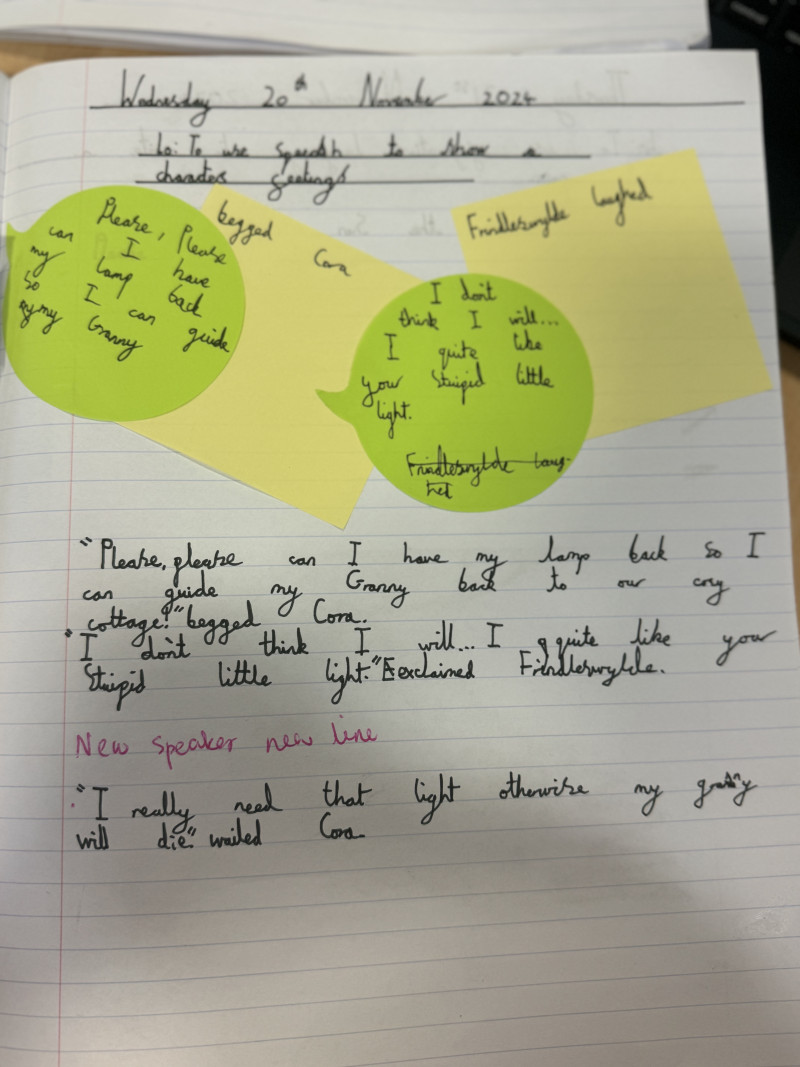 Wednesday 20th November 2024
Lo: To use speech to show a
characters feelings
Please, Please
can I have
my lamp back
so I can guide
my Granny
begged Cora
Frindleswylde laughed
I don't
think I will...
I quite like
your Stuipid little
light.
Frindleswylde laug-
hed
"Please, please can I have my lamp back so I
can guide my Granny back to our cosy
cottage!" begged Cora.
"I don't think I will... I quite like your
Stuipid little light." exclaimed Frindleswylde.
New speaker new line
"I really need that light otherwise my granny
will die." wailed Cora